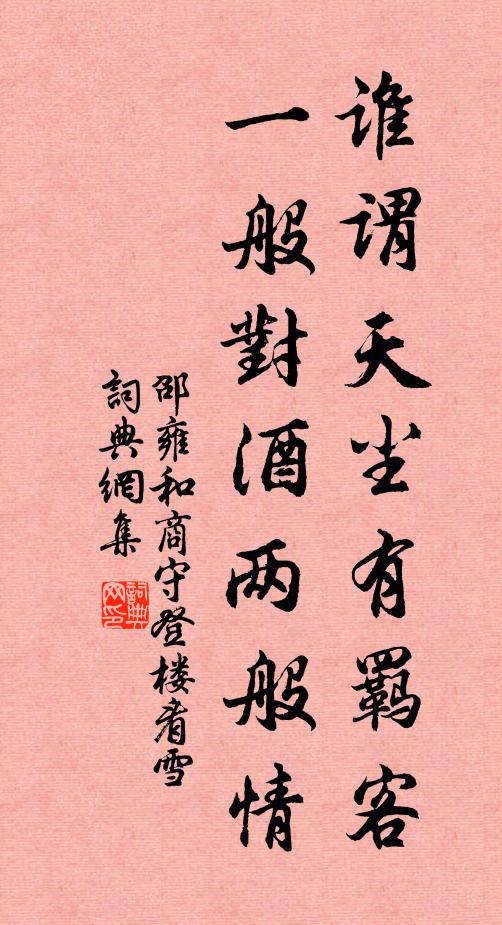 谁谓天坐有羈客
一般對酒两般情
邵雍和商守登楼看雪
詞典網集
詞典网印